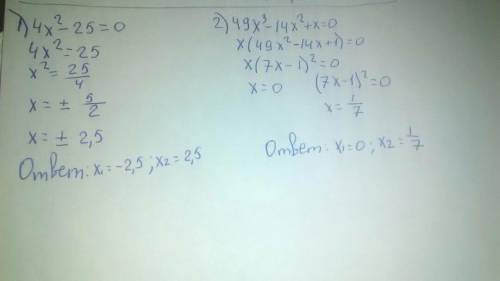 1) 4x² - 25 = 0
4x² = 25
x² = 25/4
x = ± 5/2
x = ± 2,5
Ответ: x₁ = -2,5 ; x₂ = 2,5
2) 49x³ - 14x² + x = 0
x(49x² - 14x + 1) = 0
x(7x - 1)² = 0
x = 0 (7x - 1)² = 0
x = 1/7
Ответ: x₁ = 0 ; x₂ = 1/7